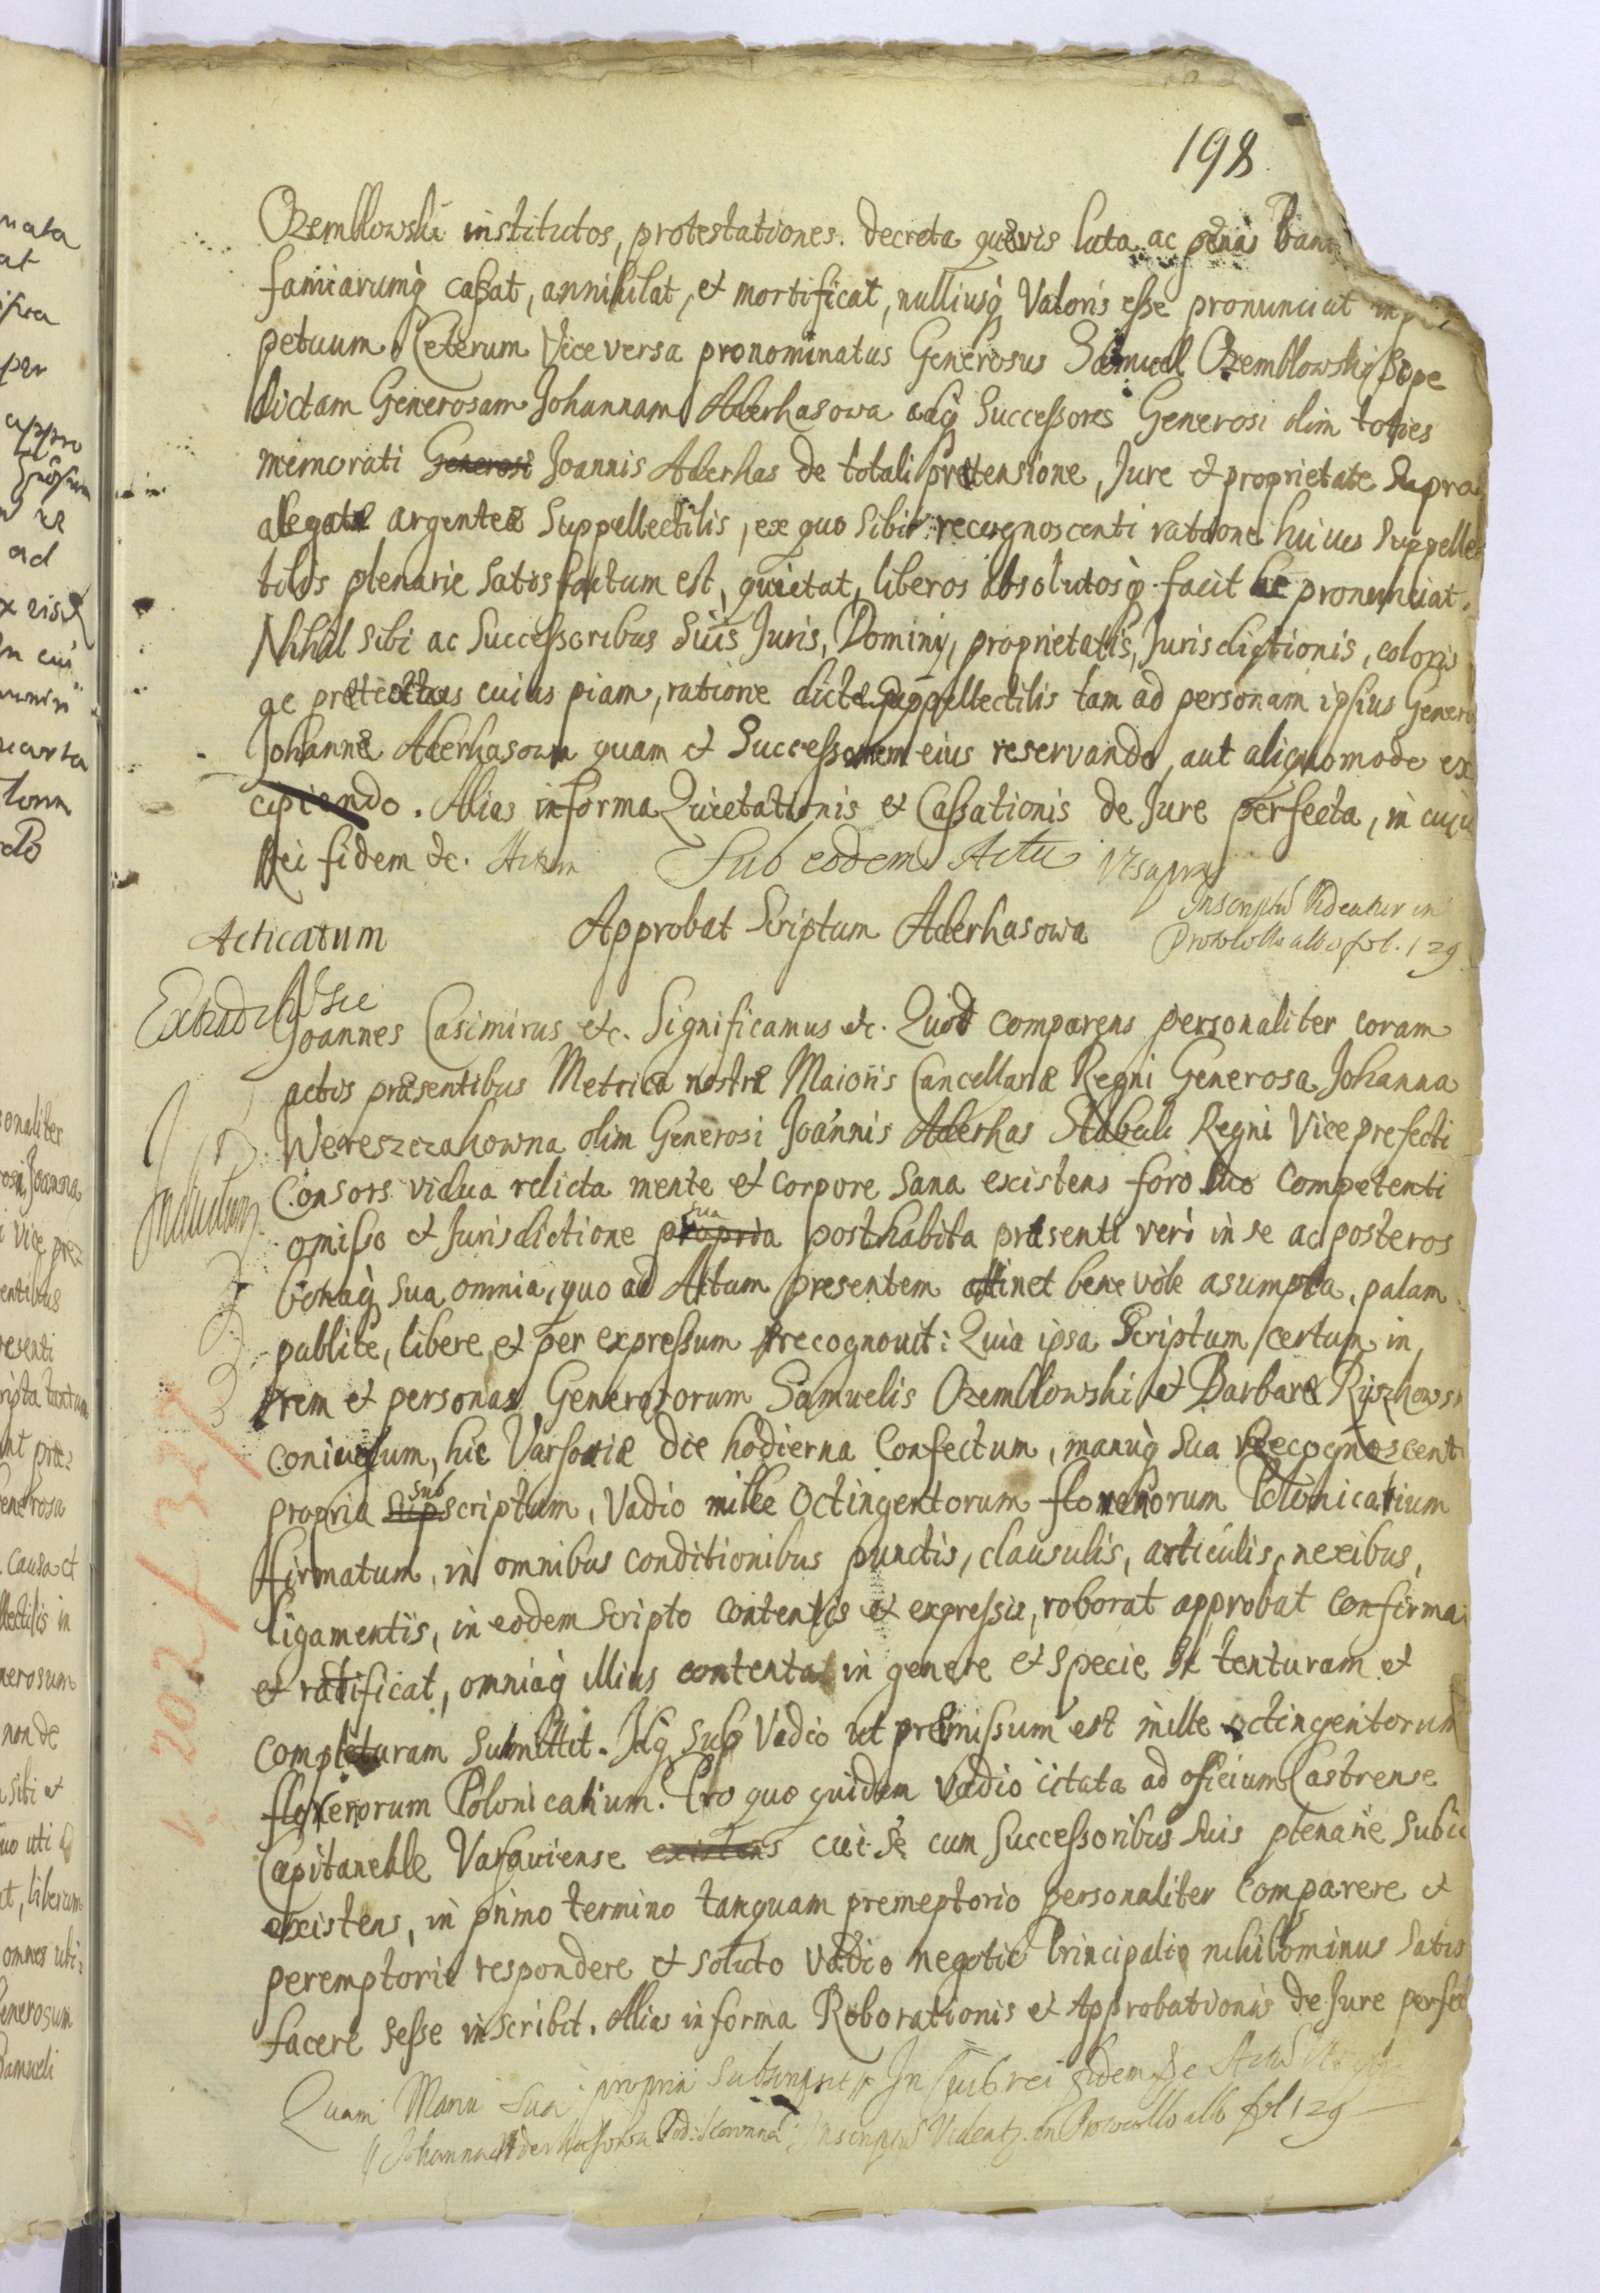 198
Ozemblowski institutos, protestationes. decreta quævis lata ac pænas bann
famiarumq̀ caßat, annihilat, et mortificat, nulliusq̀ Valoris eße pronunciat in per
petuum. Ceterum Vice versa pronominatus Generosus Samuel Ozemblowski sæpe
dictam Generosam Johannam Aderhasowa adq̀ Succeßores Generosi olim toties
memorati Generosi Joannis Aderhas de totali prætensione, Jure et proprietate supra
alegatæ argenteæ Suppellectilis, ex quo sibi recognoscenti ratione huius Suppellec
tilis plenarie satis factum est, quietat, liberos absolutosq̀ facit ac pronunciat.
Nihil sibi ac Succeßoribus Suis Juris, Dominy, proprietatis, Jurisdictionis, coloris
ac prætextus cuius piam, ratione dictæ Suppellectilis tam ad personam ipsius Generosæ
Johannæ Aderhasowa quam et Succeßorem eius reservando, aut aliquomodo ex
cipiendo. Alias in forma Quietationis et Caßationis de Jure perfecta, in cuiu
Rei fidem &c. Actum Sub eodem Actu Vt supra
Acticatum
Approbat Scriptum Aderhasowa
Inscriptio Videatur in
Protocollo albo fol. 129
Joannes Casimirus etc. Significamus etc. Quod comparens personaliter coram
actis præsentibus Metricæ nostræ Maioris Cancellariæ Regni Generosa Johanna
Wereszczakowna olim Generosi Joannis Aderhas Stabuli Regni Vice prefecti
Consors vidua relicta mente et corpore sana existens foro suo competenti
omißo et Jurisdictione propria sua posthabita præsenti verò in se ac posteros
bonaq̀ sua omnia, quo ad Actum presentem attinet benevole asumpta, palam
publice, libere, et per expreßum recognouit: Quia ipsa Scriptum certum in
rem et personas Generosorum Samuelis Ozemblowski et Barbaræ Ryszkowsk
coniugum, hic Varsoviæ die hodierna Confectum, manuq̀ sua recognoscenti
propria sup sub scriptum, Vadio mille Octingentorum florenorum Polonicalium
firmatum, in omnibus conditionibus punctis, clausulis, articulis, nexibus,
ligamentis, in eodem scripto contentis et expreßis, roborat approbat confirmat
et ratificat, omniaq̀ illius contenta in genere et specie se tenturam et
completuram submittit. Idq̀ sub Vadio ut premißum est mille octingentorum
florenorum Polonicalium. Pro quo quidem Vadio citata ad officium Castrense
Capitaneale Varsauiense existens cui se cum Succeßoribus suis plenarie subic
existens, in primo termino tanquam premeptorio personaliter comparere et
peremptorie respondere et soluto Vadio negotio Principalio nihilominus satis
facere seße inscribit. Alias in forma Roborationis et Approbationis de Jure perfect
Quam Manu Sua propria Subscripsit. In cuius rei fidem &c Actum
Johanna Aderhasowa Inscriptio Videatur in Protocollo albo fol 129
Inductum
V. 202/327